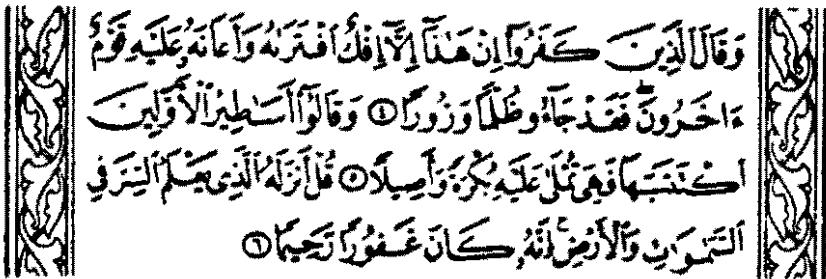 وَقَالَ الَّذِينَ كَفَرُوٓا۟ إِنْ هَٰذَآ إِلَّآ إِفْكٌ ٱفْتَرَىٰهُ وَأَعَانَهُۥ عَلَيْهِ قَوْمٌ
ءَاخَرُونَ ۖ فَقَدْ جَآءُو ظُلْمًا وَزُورًا ٤ وَقَالُوٓا۟ أَسَٰطِيرُ ٱلْأَوَّلِينَ
ٱكْتَتَبَهَا فَهِىَ تُمْلَىٰ عَلَيْهِ بُكْرَةً وَأَصِيلًا ٥ قُلْ أَنزَلَهُ ٱلَّذِى يَعْلَمُ ٱلسِّرَّ فِى
ٱلسَّمَٰوَٰتِ وَٱلْأَرْضِ ۚ إِنَّهُۥ كَانَ غَفُورًا رَّحِيمًا ٦